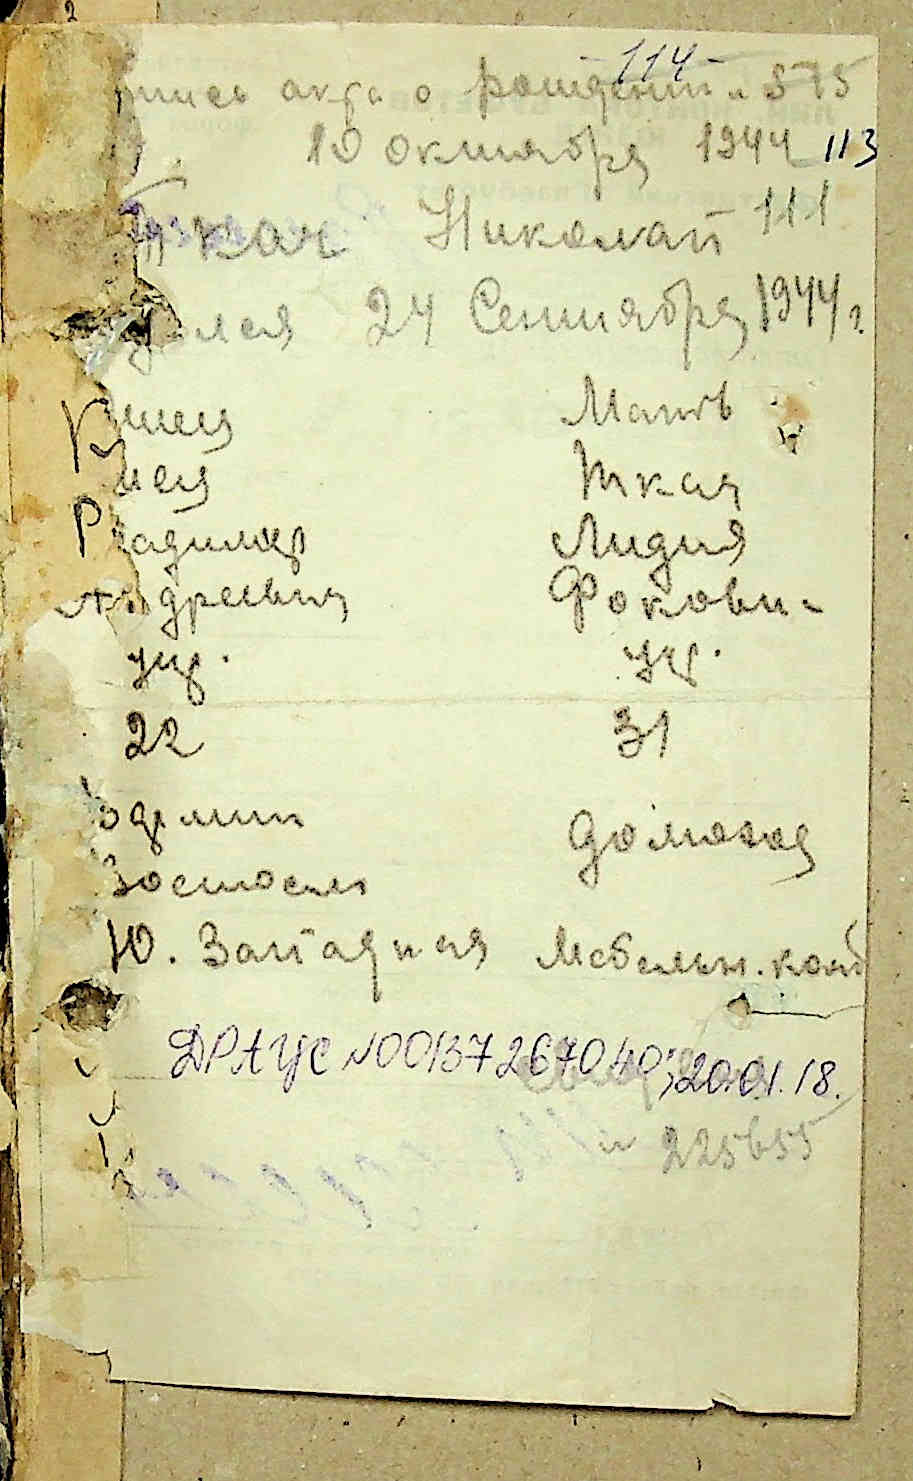 114
пись акта о рождении n 575
10 октября 1944 113
Ткач Николай 111
дился 24 Сентября 1944 г.
Мать
Ткач
Владимир Лидия
Андреевич Фокови-
укр. укр.
22 31
домохоз
Ю. Западная Мебельн. комб
ДРАЦС N00137267040; 20.01.18.
n 225655